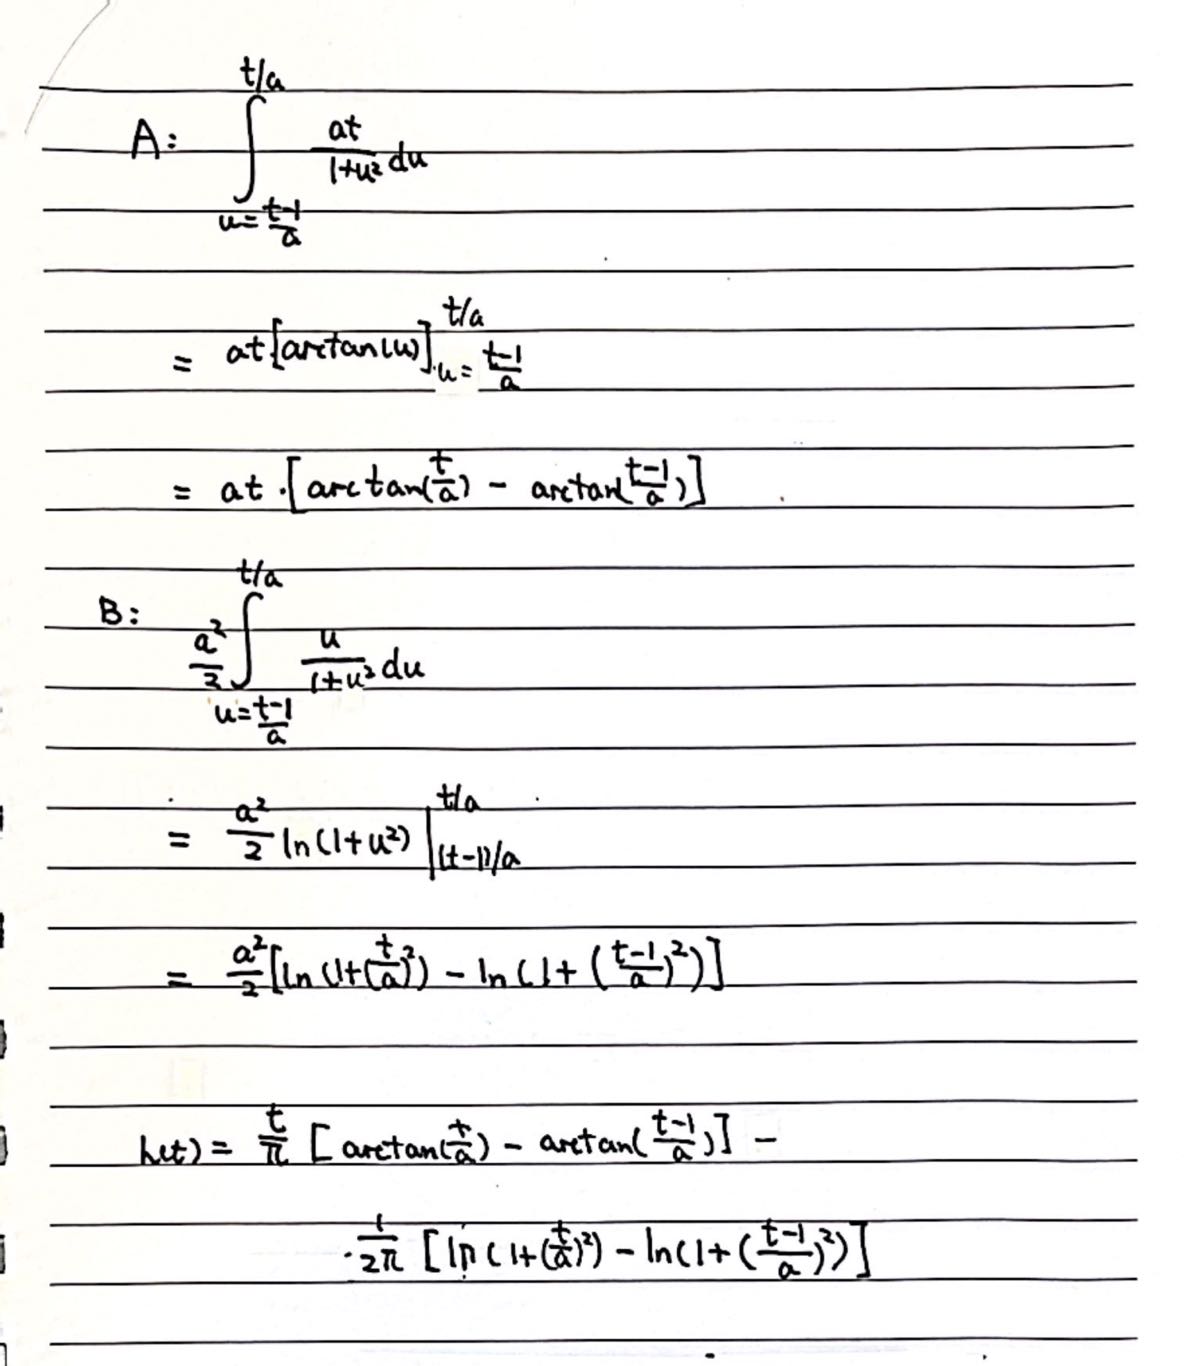 A: ∫_{u=\frac{t-1}{a}}^{t/a} \frac{at}{1+u²} du
= at[arctan(u)]_{u=\frac{t-1}{a}}^{t/a}
= at·[arctan(\frac{t}{a}) - arctan(\frac{t-1}{a})]
B: \frac{a²}{2} ∫_{u=\frac{t-1}{a}}^{t/a} \frac{u}{1+u²} du
= \frac{a²}{2} ln(1+u²) |_{(t-1)/a}^{t/a}
= \frac{a²}{2} [ln(1+(\frac{t}{a})²) - ln(1+(\frac{t-1}{a})²)]
h(t) = \frac{t}{π} [arctan(\frac{t}{a}) - arctan(\frac{t-1}{a})] -
·\frac{1}{2π} [ln(1+(\frac{t}{a})²) - ln(1+(\frac{t-1}{a})²)]